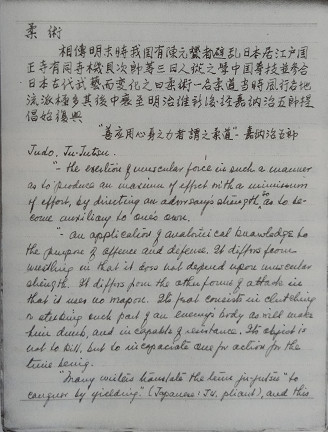 柔術
相傳明末時我国有陳元贇者避乱日本居江户国
正寺有同寺機貝次郎等三日人從之學中国拳技並參合
日本古代武藝而變化之曰柔術一名柔道当時風行各地
流派極多其後中衰至明治維新後经嘉訥治五師提
倡始復興
"善应用心身之力者謂之柔道"-嘉訥治五師
Judo, Ju-Jutsu.
"- the exertion of muscular force in such a manner
as to produce an maximum of effect with a minimum
of effort, by directing an adversary's strength so as to be-
come auxiliary to one's own.
"- an application of anatomical knowledge to
the purpose of offence and defence. It differs from
wrestling in that it does not depend upon muscular
strength. It differs from the other forms of attack in
that it uses no weapon. Its feat consists in clutching
or striking such part of an enemy's body as will make
him dumb, and incapable of resistance. Its object is
not to kill, but to incapaciate one for action for the
time being.
"Many writers translate the term ju-jutsu "to
conquer by yielding" (Japanese: Ju, pliant), and this